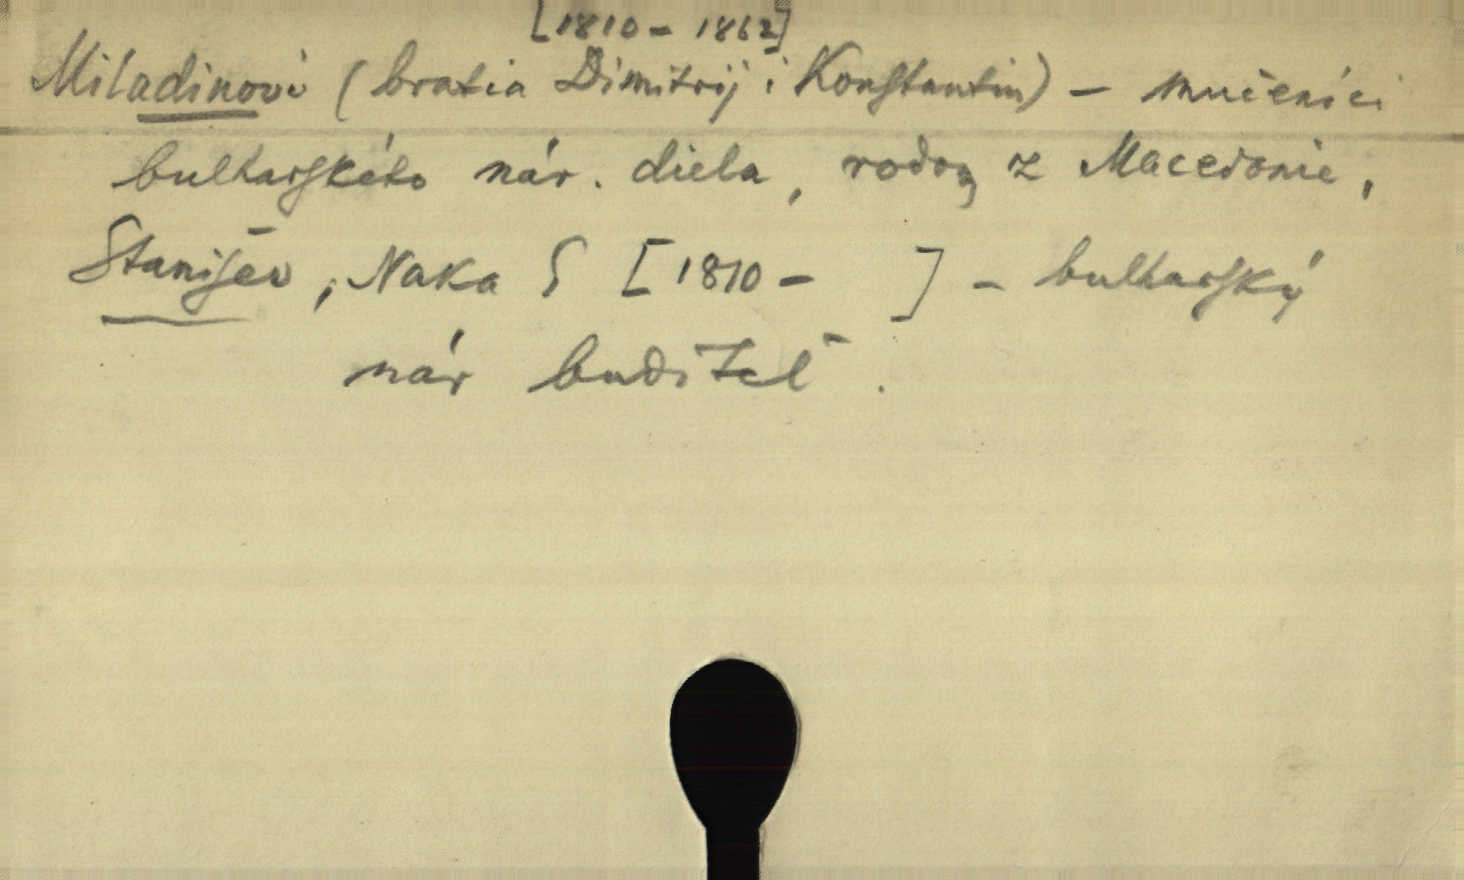 [1810 - 1862]
Miladinovi (bratia Dimitrij i Konštantin) - mučeníci
bulharského nár. diela, rodom z Macedonie,
Stanišev, Naka S [1810 - ] - bulharský
nár buditeľ.